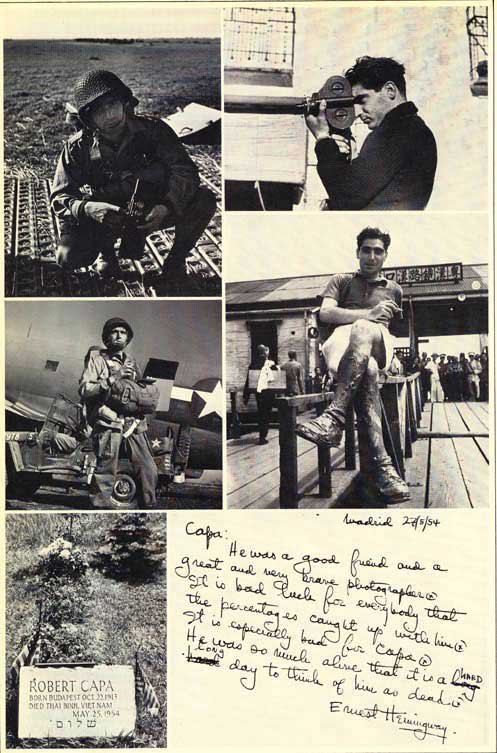 ROBERT CAPA
BORN BUDAPEST OCT.22,1913
DIED THAI BINH, VIET NAM
MAY 25, 1954
שלום
Madrid 27/5/54
Capa:
He was a good friend and a
great and very brave photographer.
It is bad luck for everybody that
the percentages caught up with him.
It is especially bad for Capa.
He was so much alive that it is a HARD
LONG day to think of him as dead.
Ernest Hemingway.